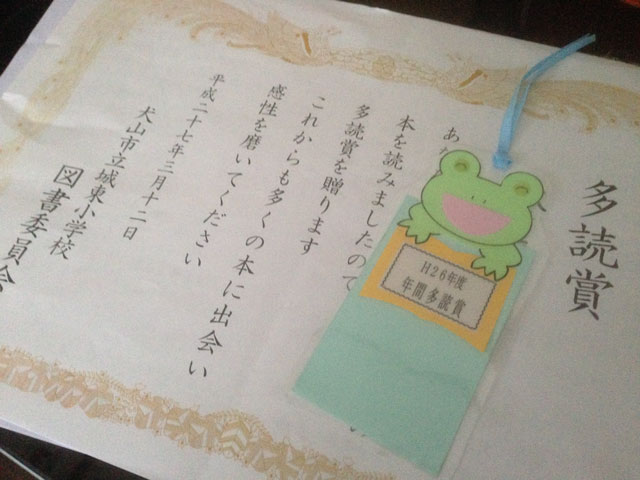 多読賞
あ
本を読みましたので
多読賞を贈ります
これからも多くの本に出会い
感性を磨いてください
平成二十七年三月十二日
犬山市立城東小学校
図書委員会
H26年度
年間多読賞